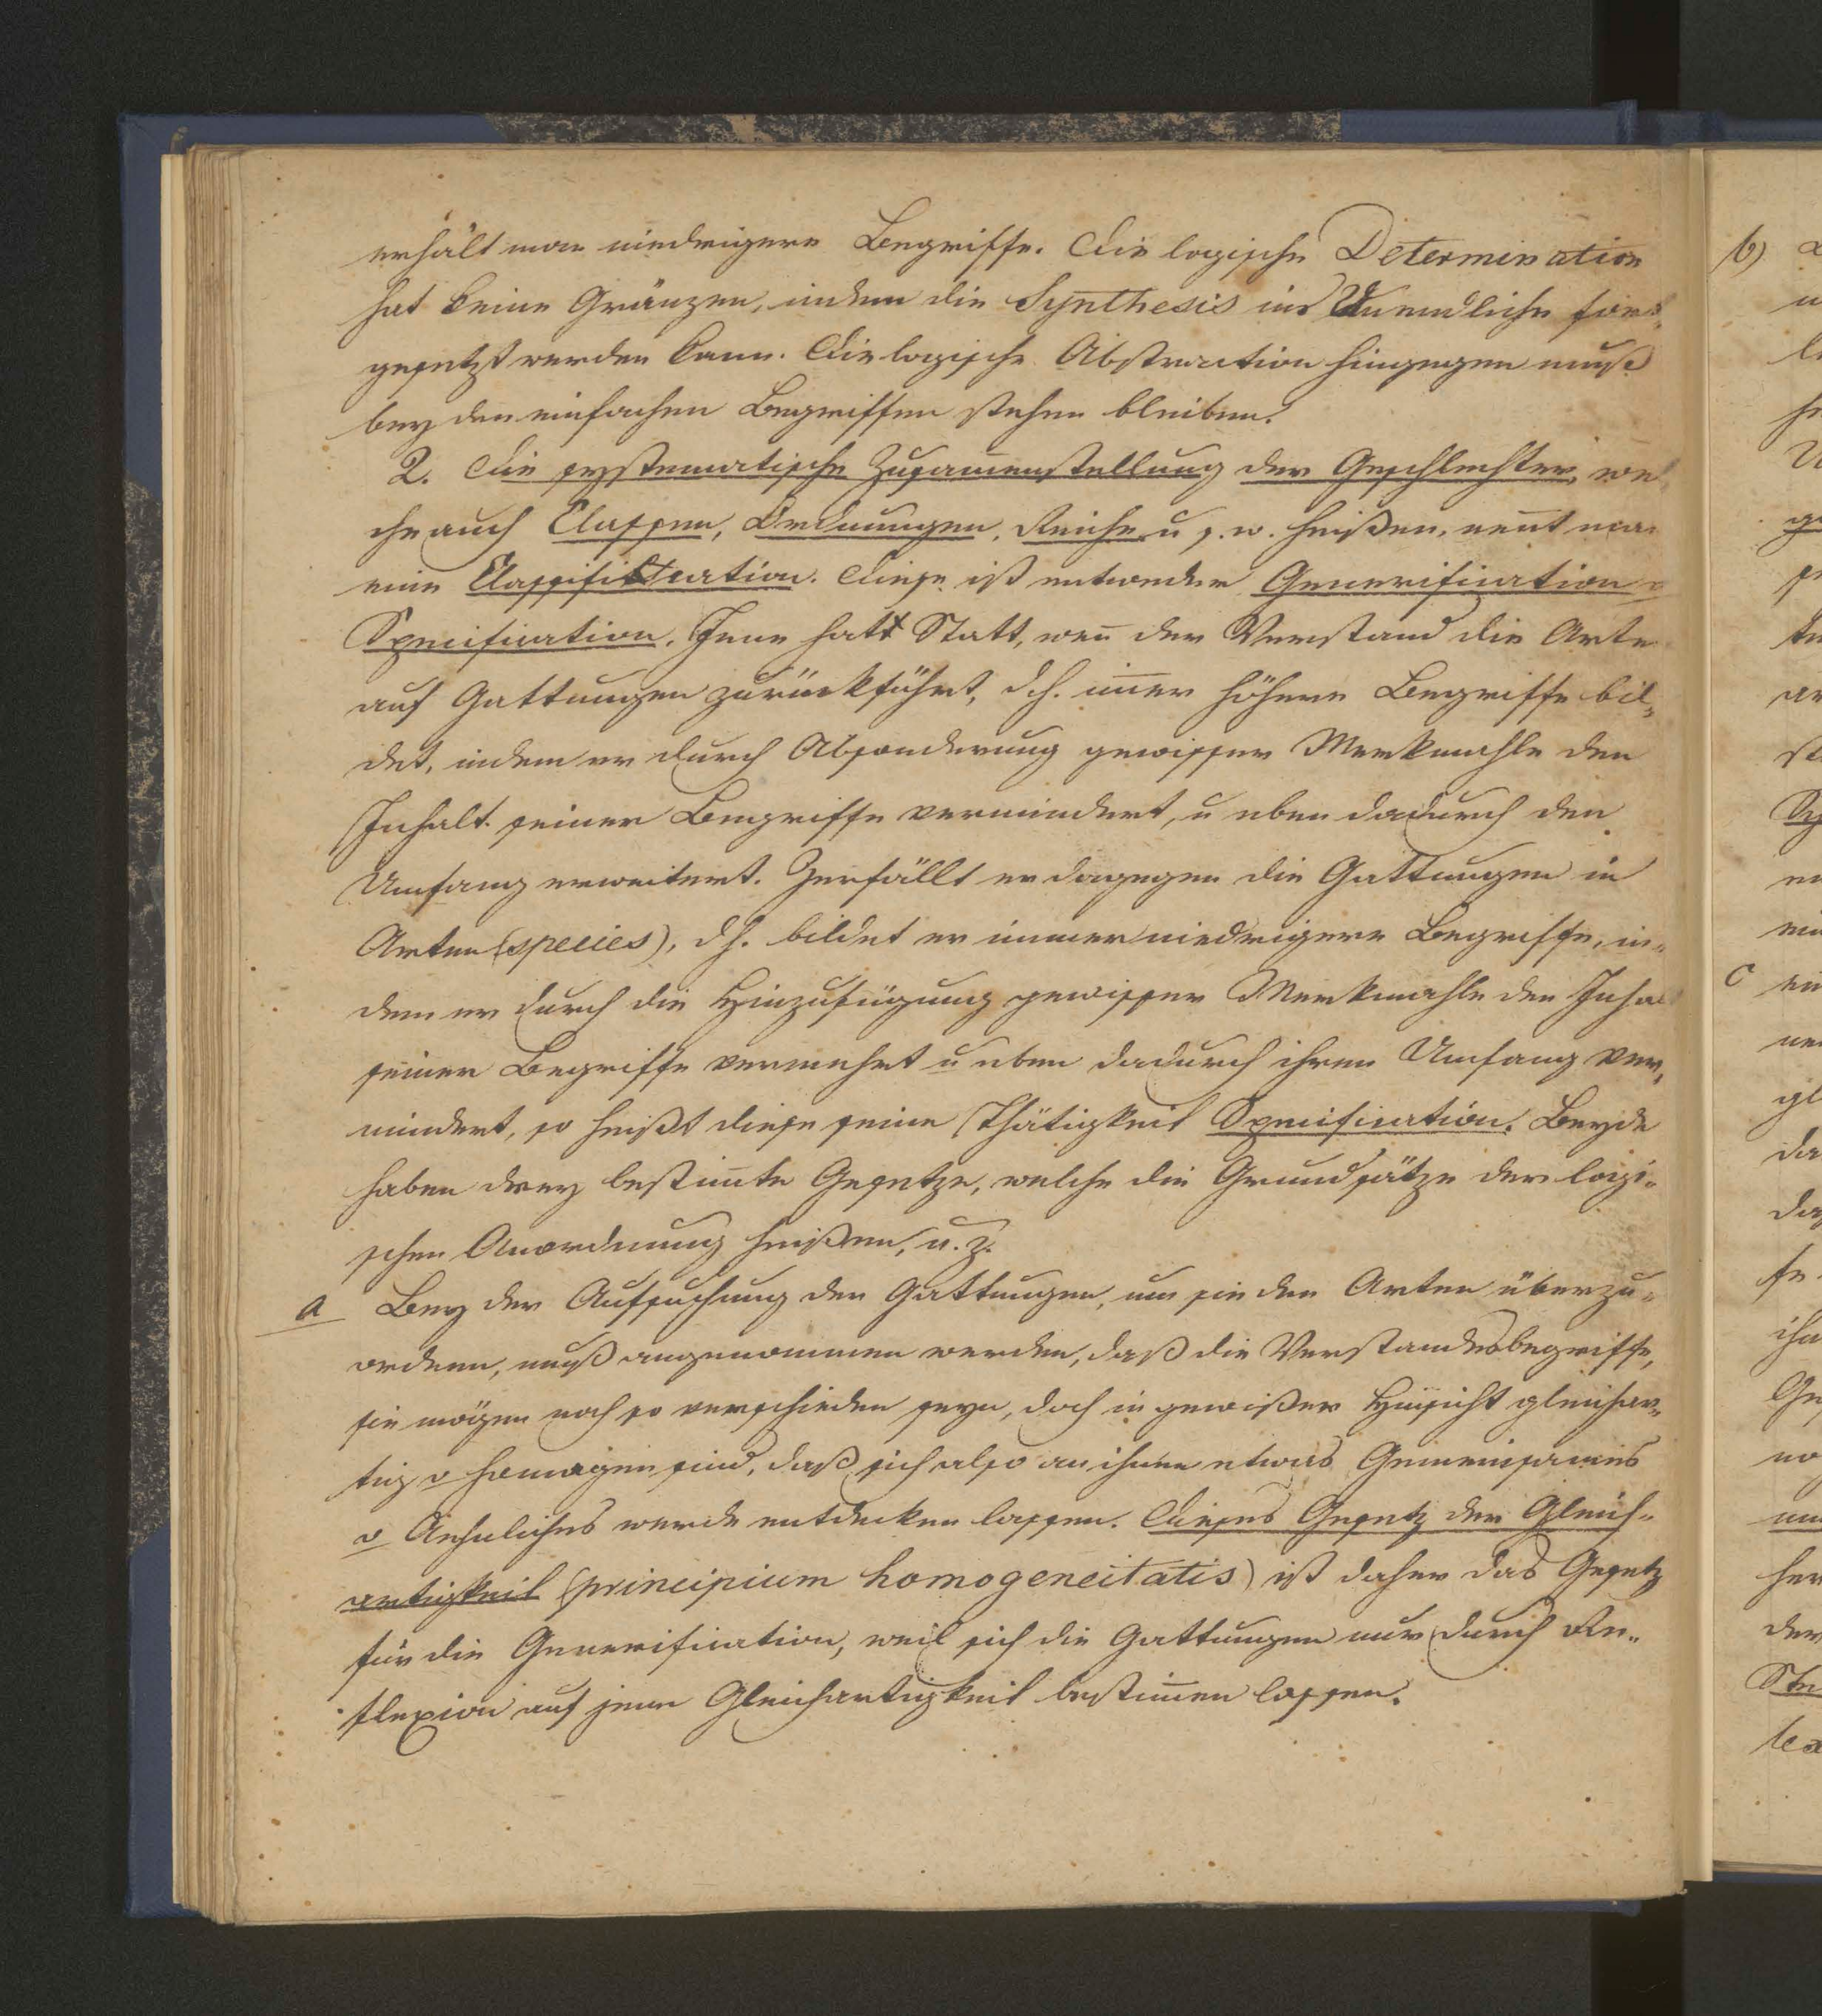 erhält man niedrigere Begriffe. Die logische Determination
hat keine Gränzen, indem die Synthesis ins Unendliche fort-
gesetzt werden kann. Die logische Abstraction hingegen muß
bey den einfachen Begriffen stehen bleiben.
2. Die systematische Zusam̄enstellung der Geschlechter, wel
che auch Classen, Ordnungen, Reiche u s. w. heißen, nen̄t man
eine Classification. Diese ist entweder Generification o
Specification. Jene hatt Statt, wen̄ der Verstand die Arten
auf Gattungen zurückführt, d.h. im̄er höhere Begriffe bil-
det, indem er durch Absonderung gewisser Merkmahle den
Inhalt seiner Begriffe vermindert, u eben dadurch den
Umfang erweitert. Zerfällt er dagegen die Gattungen in
Arten (species), d h. bildet er immer niedrigere Begriffe, in-
dem er durch die Hinzufügung gewisser Merkmahle den Inhal
seiner Begriffe vermehrt u eben dadurch ihren Umfang ver-
mindert, so heißt diese seine Thätigkeit Specification. Beyde
haben drey bestim̄te Gesetze, welche die Grundsätze der logi-
schen Anordnung heißen, u. z.
a Bey der Aufsuchung der Gattungen, um sie den Arten überzu-
ordnen, muß angenommen werden, daß die Verstandesbegriffe,
sie mögen noch so verschieden seyn, doch in gewißer Hinsicht gleichar-
tig o homogen sind, daß sich also an ihnen etwas Gemeinsames
o Aehnliches werde entdecken lassen. Dieses Gesetz der Gleich-
artigkeit (principium homogeneitatis) ist daher das Gesetz
für die Generification, weil sich die Gattungen nur durch Re-
flexion auf jene Gleichartigkeit bestim̄en lassen.
b)
c